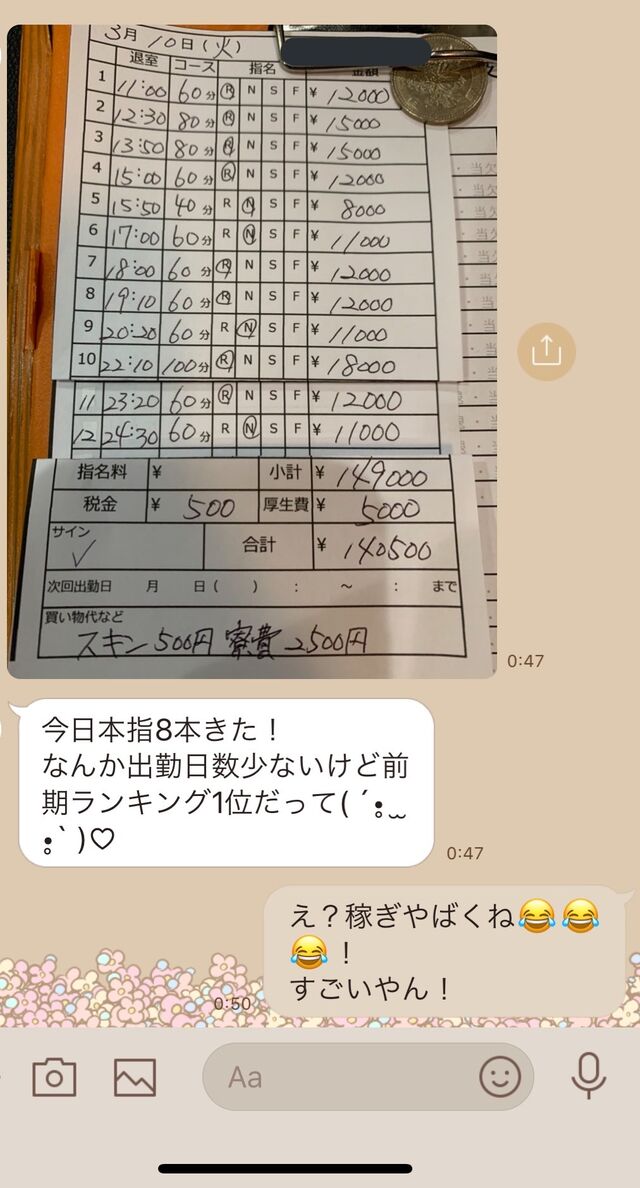 3月10日(火)
退室 コース 指名 金額
1 11:00 60分 R N S F ¥ 12000
2 12:30 80分 R N S F ¥ 15000
3 13:50 80分 R N S F ¥ 15000
4 15:00 60分 R N S F ¥ 12000
5 15:50 40分 R N S F ¥ 8000
6 17:00 60分 R N S F ¥ 11000
7 18:00 60分 R N S F ¥ 12000
8 19:10 60分 R N S F ¥ 12000
9 20:20 60分 R N S F ¥ 11000
10 22:10 100分 R N S F ¥ 18000
11 23:20 60分 R N S F ¥ 12000
12 24:30 60分 R N S F ¥ 11000
指名料 ¥ 小計 ¥ 149000
税金 ¥ 500 厚生費 ¥ 5000
サイン ✓ 合計 ¥ 140500
次回出勤日 月 日( ) : 〜 : まで
買い物代など
スキン 500円 寮費 2500円
0:47
今日本指8本きた！
なんか出勤日数少ないけど前
期ランキング1位だって( ´•̥ ̫
•̥` )♡
0:47
え？稼ぎやばくね😂😂
😂！
すごいやん！
0:50
Aa